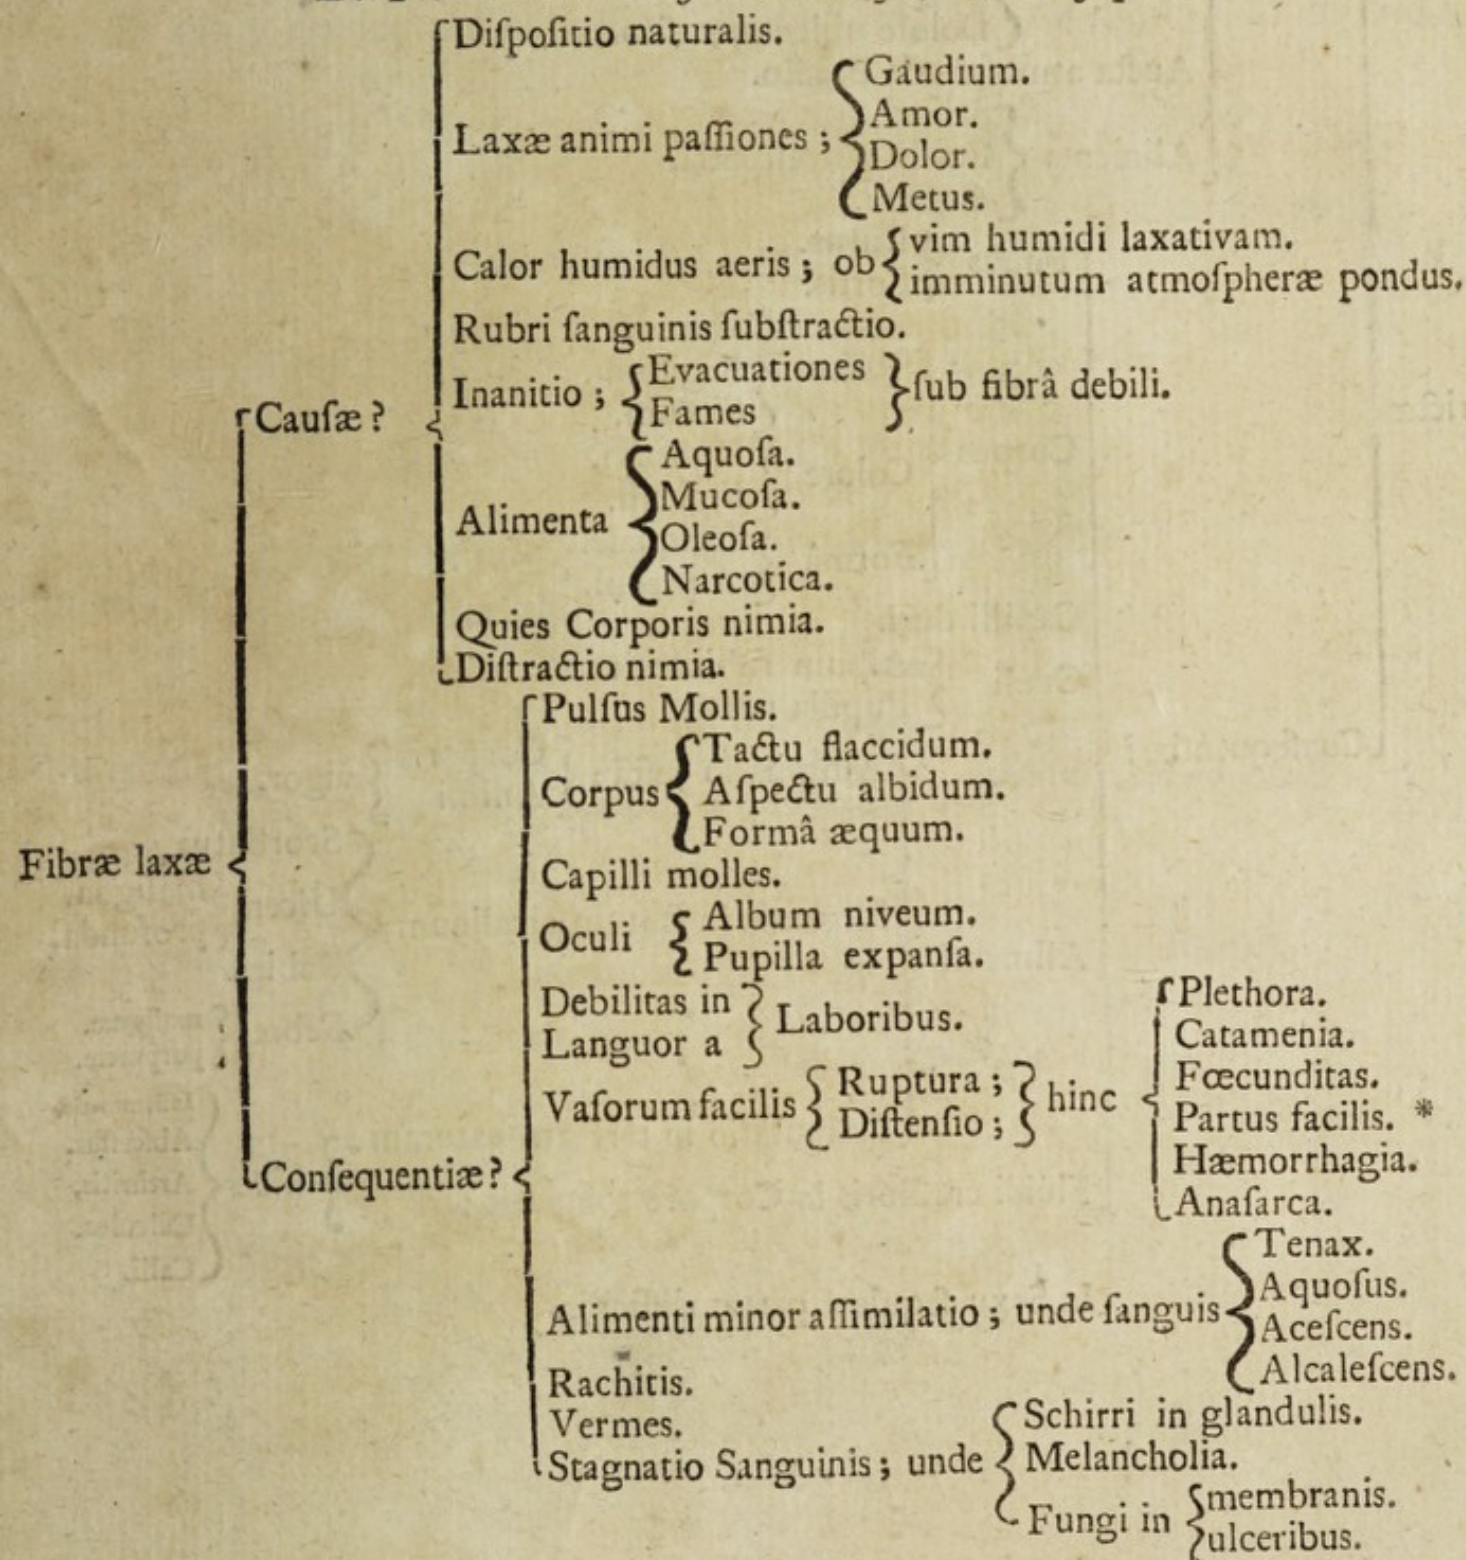 Diſpoſitio naturalis.
Laxæ animi paſſiones ;
Gaudium.
Amor.
Dolor.
Metus.
Calor humidus aeris ; ob
vim humidi laxativam.
imminutum atmoſpheræ pondus.
Rubri ſanguinis ſubſtractio.
Inanitio ;
Evacuationes
Fames
ſub fibrâ debili.
Cauſæ ?
Alimenta
Aquoſa.
Mucoſa.
Oleoſa.
Narcotica.
Quies Corporis nimia.
Diſtractio nimia.
Fibræ laxæ
Pulſus Mollis.
Corpus
Tactu flaccidum.
Aſpectu albidum.
Formâ æquum.
Capilli molles.
Oculi
Album niveum.
Pupilla expanſa.
Debilitas in
Languor a
Laboribus.
Vaſorum facilis
Ruptura ;
Diſtenſio ;
hinc
Plethora.
Catamenia.
Fœcunditas.
Partus facilis. *
Hæmorrhagia.
Anaſarca.
Conſequentiæ ?
Alimenti minor aſſimilatio ; unde ſanguis
Tenax.
Aquoſus.
Aceſcens.
Alcaleſcens.
Rachitis.
Vermes.
Stagnatio Sanguinis ; unde
Schirri in glandulis.
Melancholia.
Fungi in
membranis.
ulceribus.